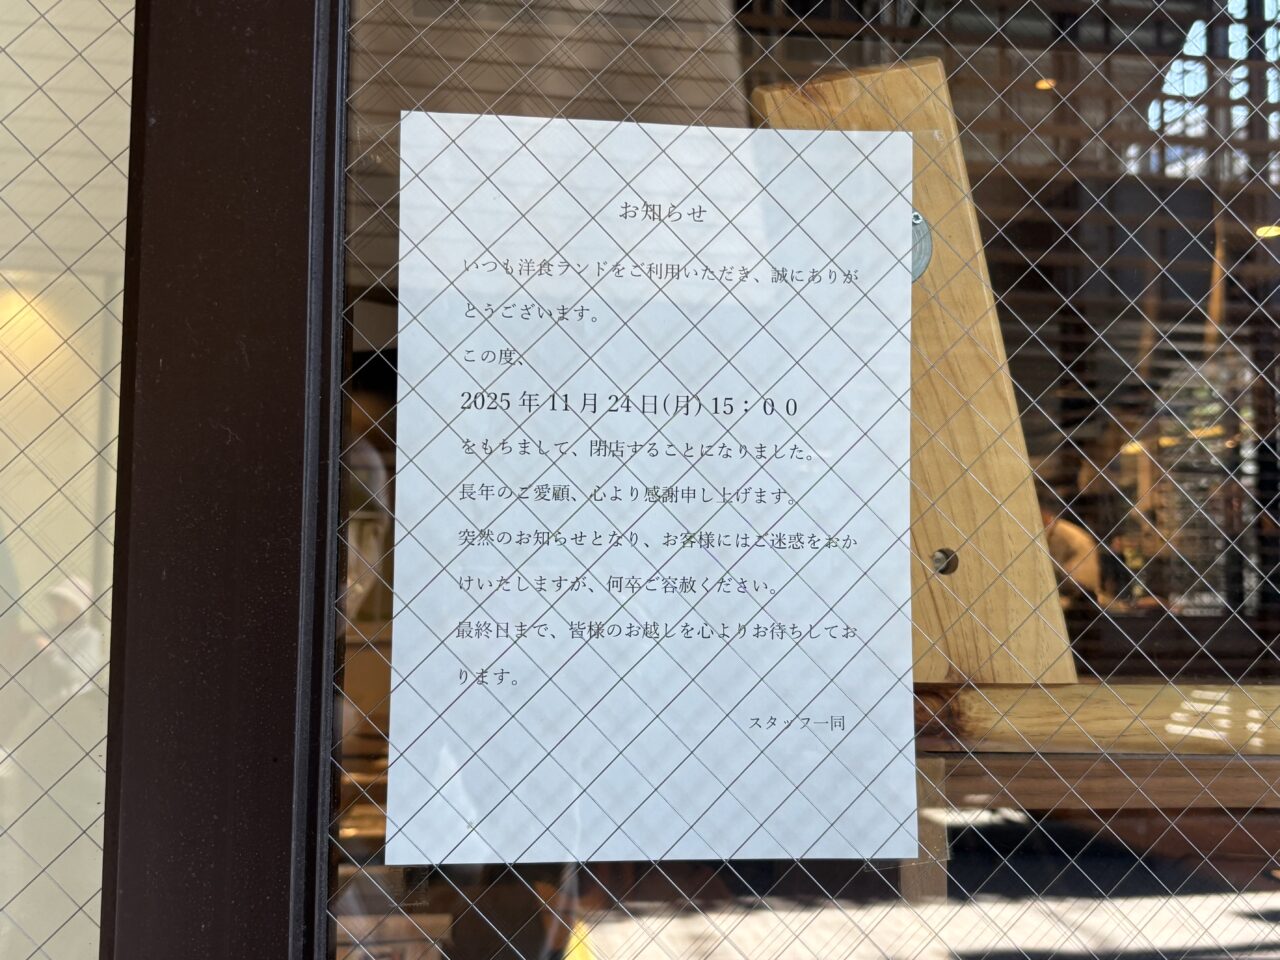 お知らせ
いつも洋食ランドをご利用いただき、誠にありが
とうございます。
この度、
2025年11月24日(月) 15：００
をもちまして、閉店することになりました。
長年のご愛顧、心より感謝申し上げます。
突然のお知らせとなり、お客様にはご迷惑をおか
けいたしますが、何卒ご容赦ください。
最終日まで、皆様のお越しを心よりお待ちしてお
ります。
スタッフ一同